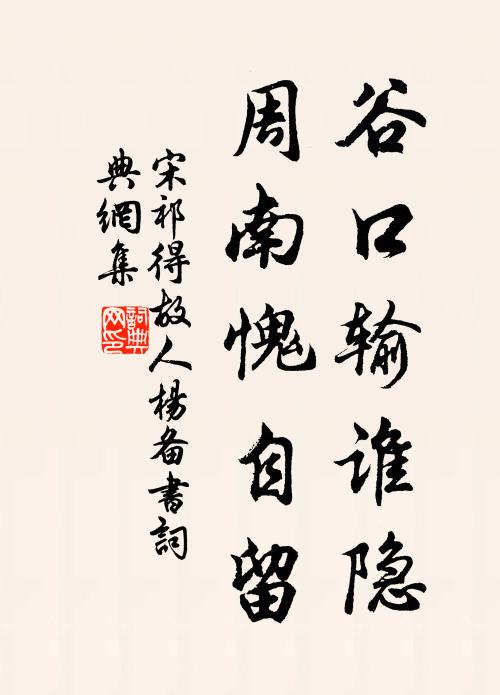 谷口输谁隐
周南愧自留
宋祁得故人杨备书词
典網集
詞典
网印